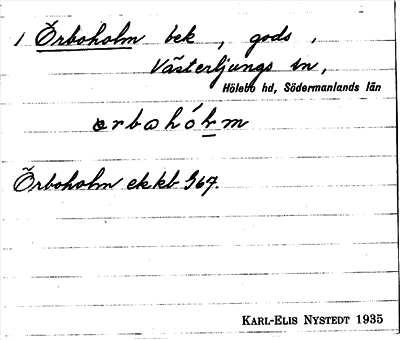 1 Örboholm bek, gods,
Västerljungs sn,
Hölebo hd, Södermanlands län
ørbohólm
Örboholm ekkb 367.
KARL-ELIS NYSTEDT 1935